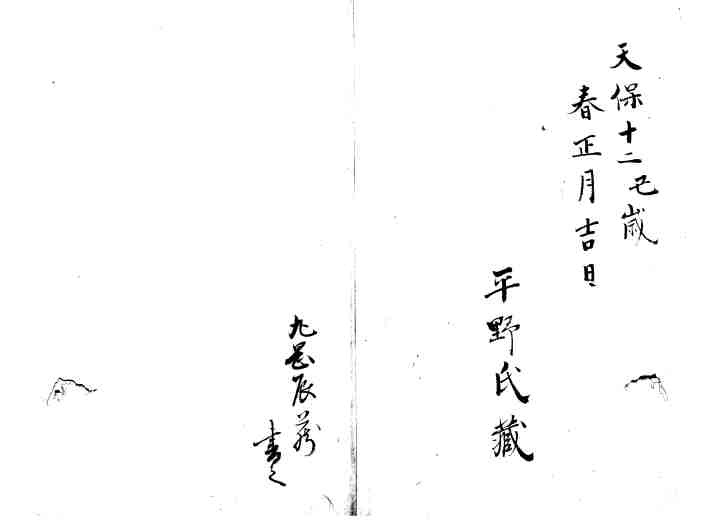 天保十二丑歳
春正月吉日
平野氏藏
九
辰蔵
書之